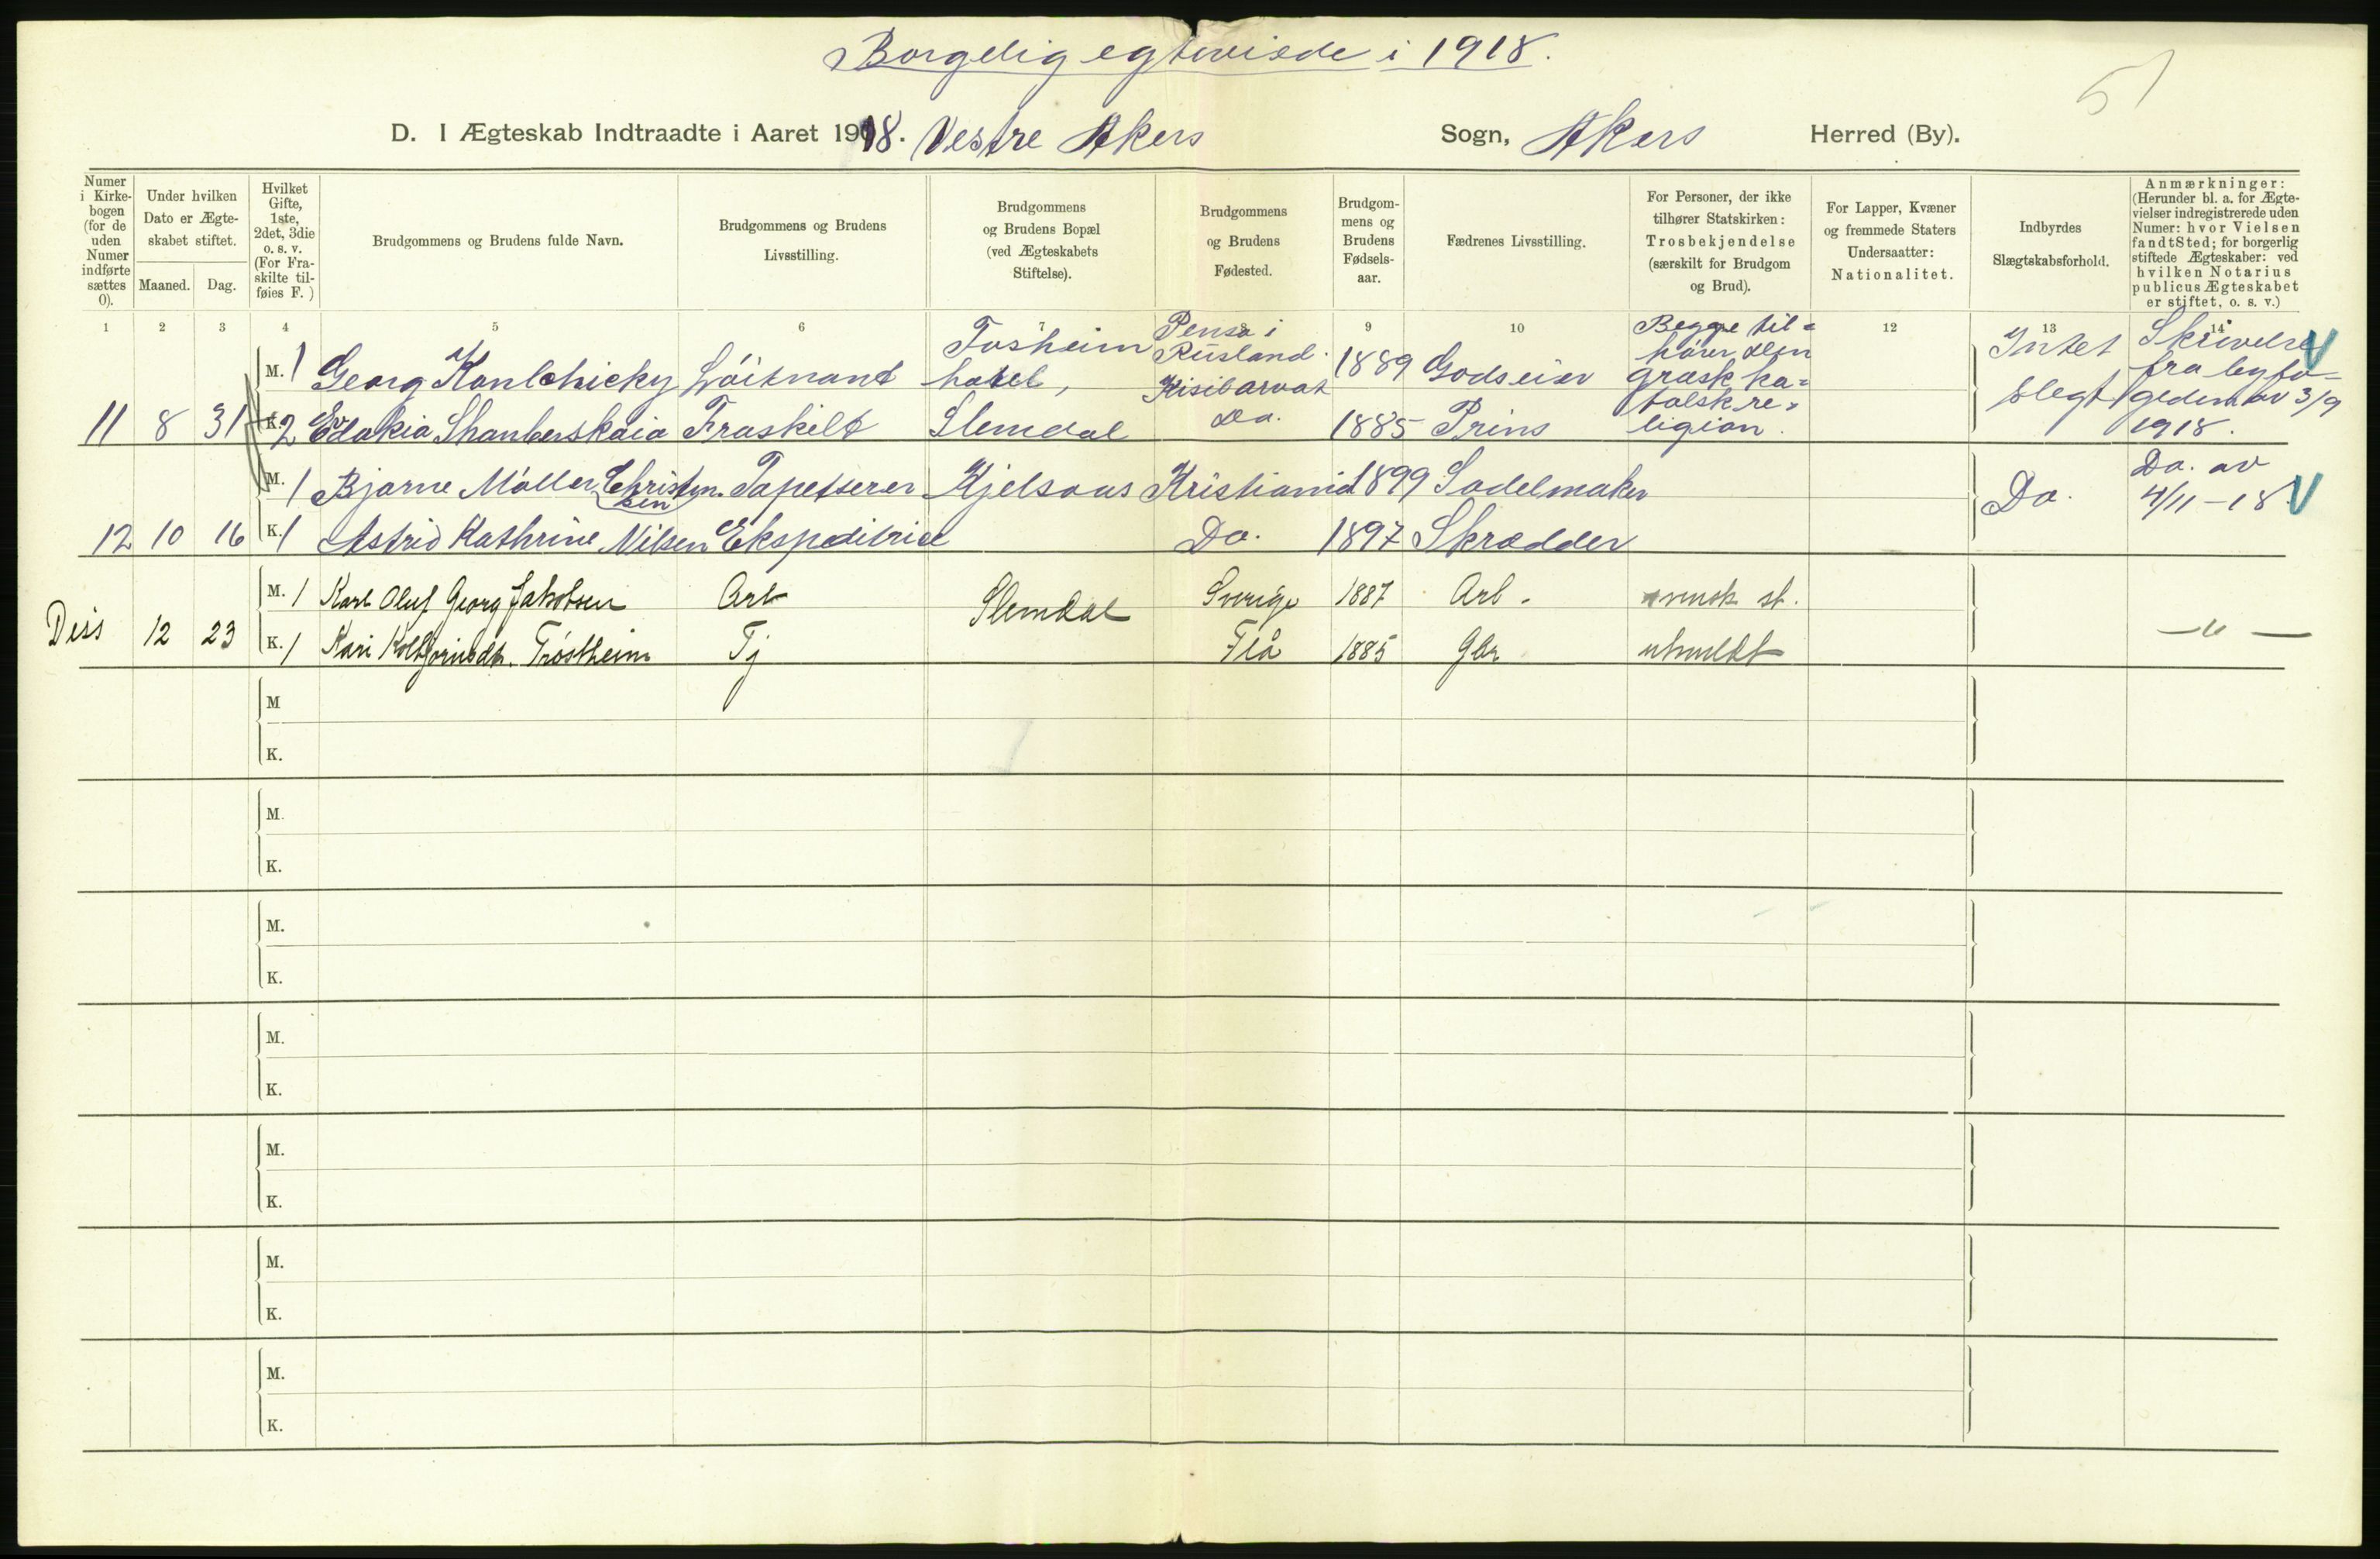 Borgelig egteviede i 1918.
D. I Ægteskab Indtraadte i Aaret 1918. Vestre Akers Sogn, Akers Herred (By).
Numer i Kirkebogen (for de uden Numer indførte sættes 0).
Under hvilken Dato er Ægteskabet stiftet.
Maaned. Dag.
Hvilket Gifte, 1ste, 2det, 3die o. s. v. (For Fraskilte tilføies F.)
Brudgommens og Brudens fulde Navn.
Brudgommens og Brudens Livsstilling.
Brudgommens og Brudens Bopæl (ved Ægteskabets Stiftelse).
Brudgommens og Brudens Fødested.
Brudgommens og Brudens Fødselsaar.
Fædrenes Livsstilling.
For Personer, der ikke tilhører Statskirken: Trosbekjendelse (særskilt for Brudgom og Brud).
For Lapper, Kvæner og fremmede Staters Undersaatter: Nationalitet.
Indbyrdes Slægtskabsforhold.
Anmærkninger: (Herunder bl. a. for Ægtevielser indregistrerede uden Numer: hvor Vielsen fandt Sted; for borgerlig stiftede Ægteskaber: ved hvilken Notarius publicus Ægteskabet er stiftet, o. s. v.)
1 2 3 4 5 6 7 8 9 10 12 13 14
M. 1 Georg Konlchicky Löitnant Tosheim hotel, Pensa i Rusland. 1889 Godseier Begge tilhører den græsk ka= Intet Skrivelse fra bygfo=
11 8 31 K. 2 Evdokia Shanberskaia Fraskilt Slemdal Kisilarvat Do. 1885 Prins tolsk re= ligion. slegt geden av 3/9 1918.
M. 1 Bjarne Møller Christensen Tapetserer Kjelsaas Kristiania 1899 Sadelmaker Do. Do. av 4/11-18 V
12 10 16 K. 1 Astrid Kathrine Nilsen Ekspeditrice Do. 1897 Skrædder
M. 1 Karl Oluf Georg Jakobsen Arb Slemdal Sverige 1887 Arb. svensk st.
Diss 12 23 K. 1 Kari Kolbjørnsdt. Trøstheim Tj Flå 1885 Gbr utmeldt — " —
M
K.
M.
K.
M.
K.
M.
K.
M.
K.
M.
K.
M.
K.